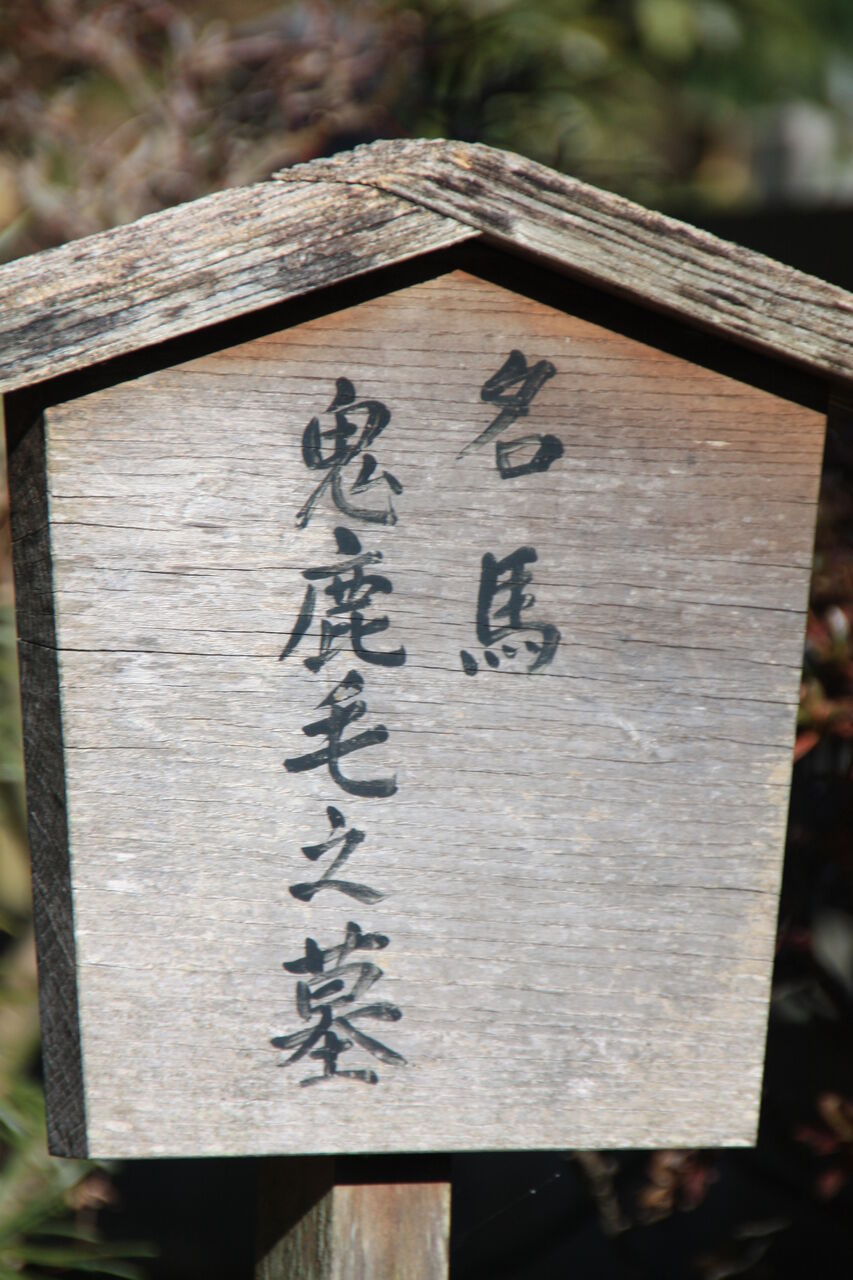 名馬
鬼鹿毛之墓